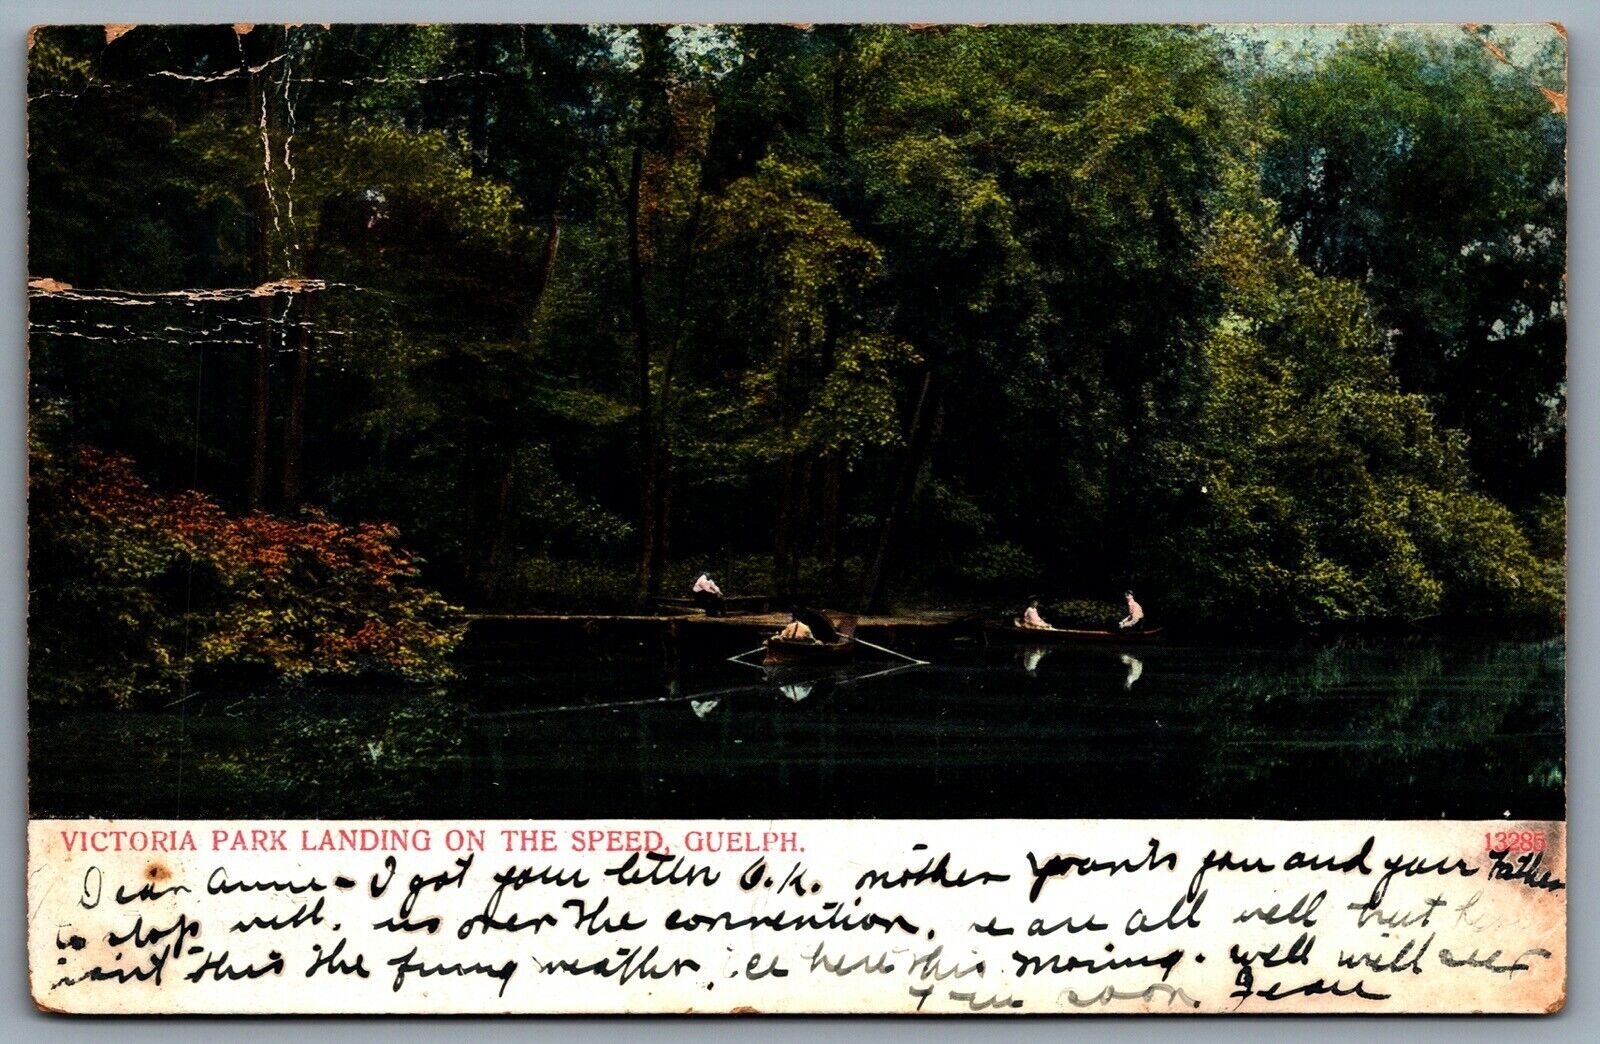 VICTORIA PARK LANDING ON THE SPEED, GUELPH. 13285
Dear Anne - I got your letter O.K. mother wants you and your Father
to stop with us over the convention. we are all well but
isn't this the funny weather, ice here this morning. well will see
you soon. Jean